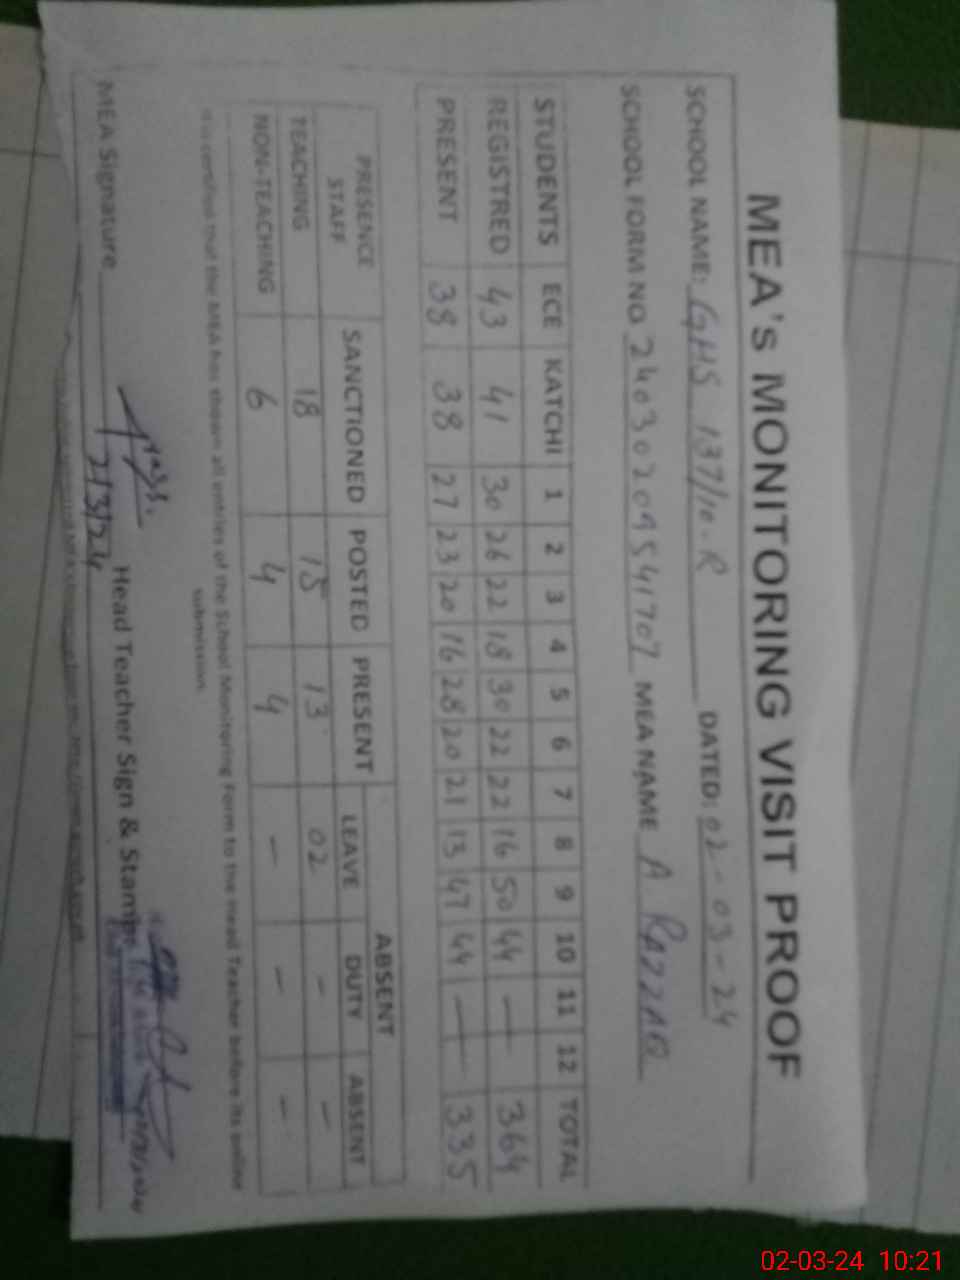 MEA's MONITORING VISIT PROOF
SCHOOL NAME: GHS 137/10-R DATED: 02-03-24
SCHOOL FORM NO 24030209541707 MEA NAME A RAZZAQ
STUDENTS ECE KATCHI 1 2 3 4 5 6 7 8 9 10 11 12 TOTAL
REGISTRED 43 41 30 26 22 18 30 22 22 16 50 44 — 364
PRESENT 38 38 27 23 20 16 28 20 21 13 47 44 — 335
PRESENCE STAFF SANCTIONED POSTED PRESENT ABSENT
LEAVE DUTY ABSENT
TEACHING 18 15 13 02 - -
NON-TEACHING 6 4 4 - - -
It is certified that the MEA has shown all entries of the School Monitoring Form to the Head Teacher before its online
submission.
MEA Signature Head Teacher Sign & Stamp
2/3/24
02-03-24 10:21